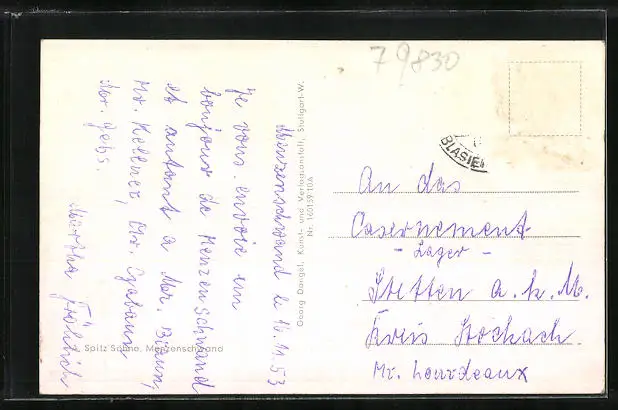 79830
Menzenschwand le 10.11.53
Je vous envoie un
bonjour de Menzenschwand
et autant a Mr. Braun,
Mr. Kellner, Mr.
Mr.
Martha Fröhlich
Spitz Söhne, Menzenschwand
Georg Dangel, Kunst- und Verlagsanstalt, Stuttgart-W.
Nr. 160159 10A
BLASIE
An das
Casernement
- Lager -
Stetten a. k. M.
Kreis Stockach
Mr. Lourdeaux